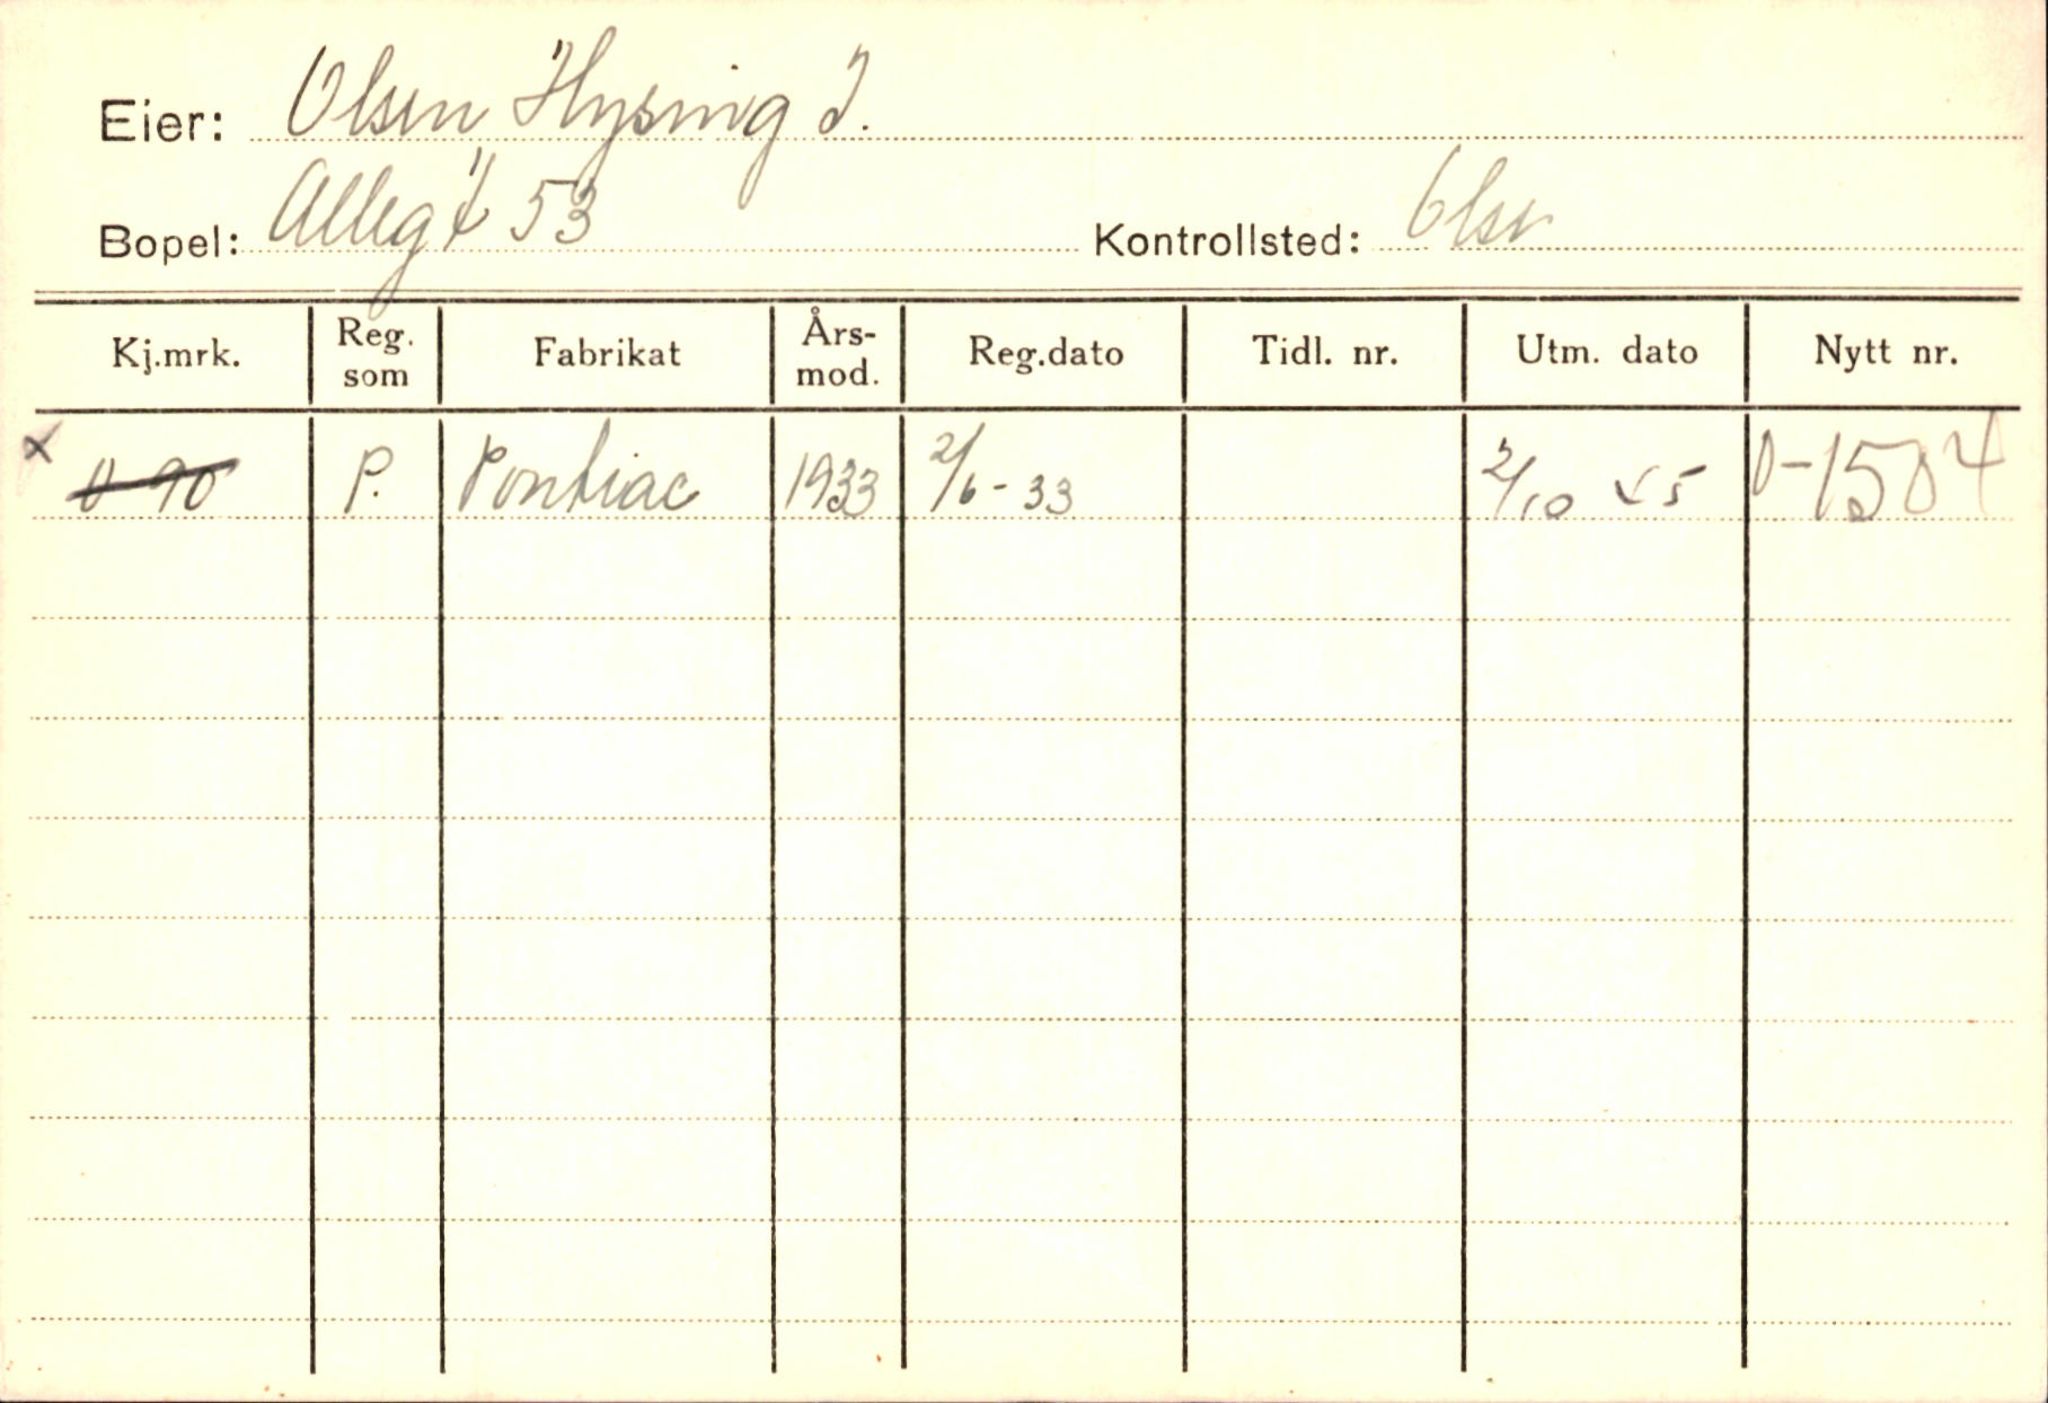 Eier: Olsen Hysing J.
Bopel: Alleg't 53 Kontrollsted: Oslo
Kj.mrk. Reg. som Fabrikat Års- mod. Reg.dato Tidl. nr. Utm. dato Nytt nr.
x 0-90 P. Pontiac 1933 2/6-33 2/10 45 0-1504